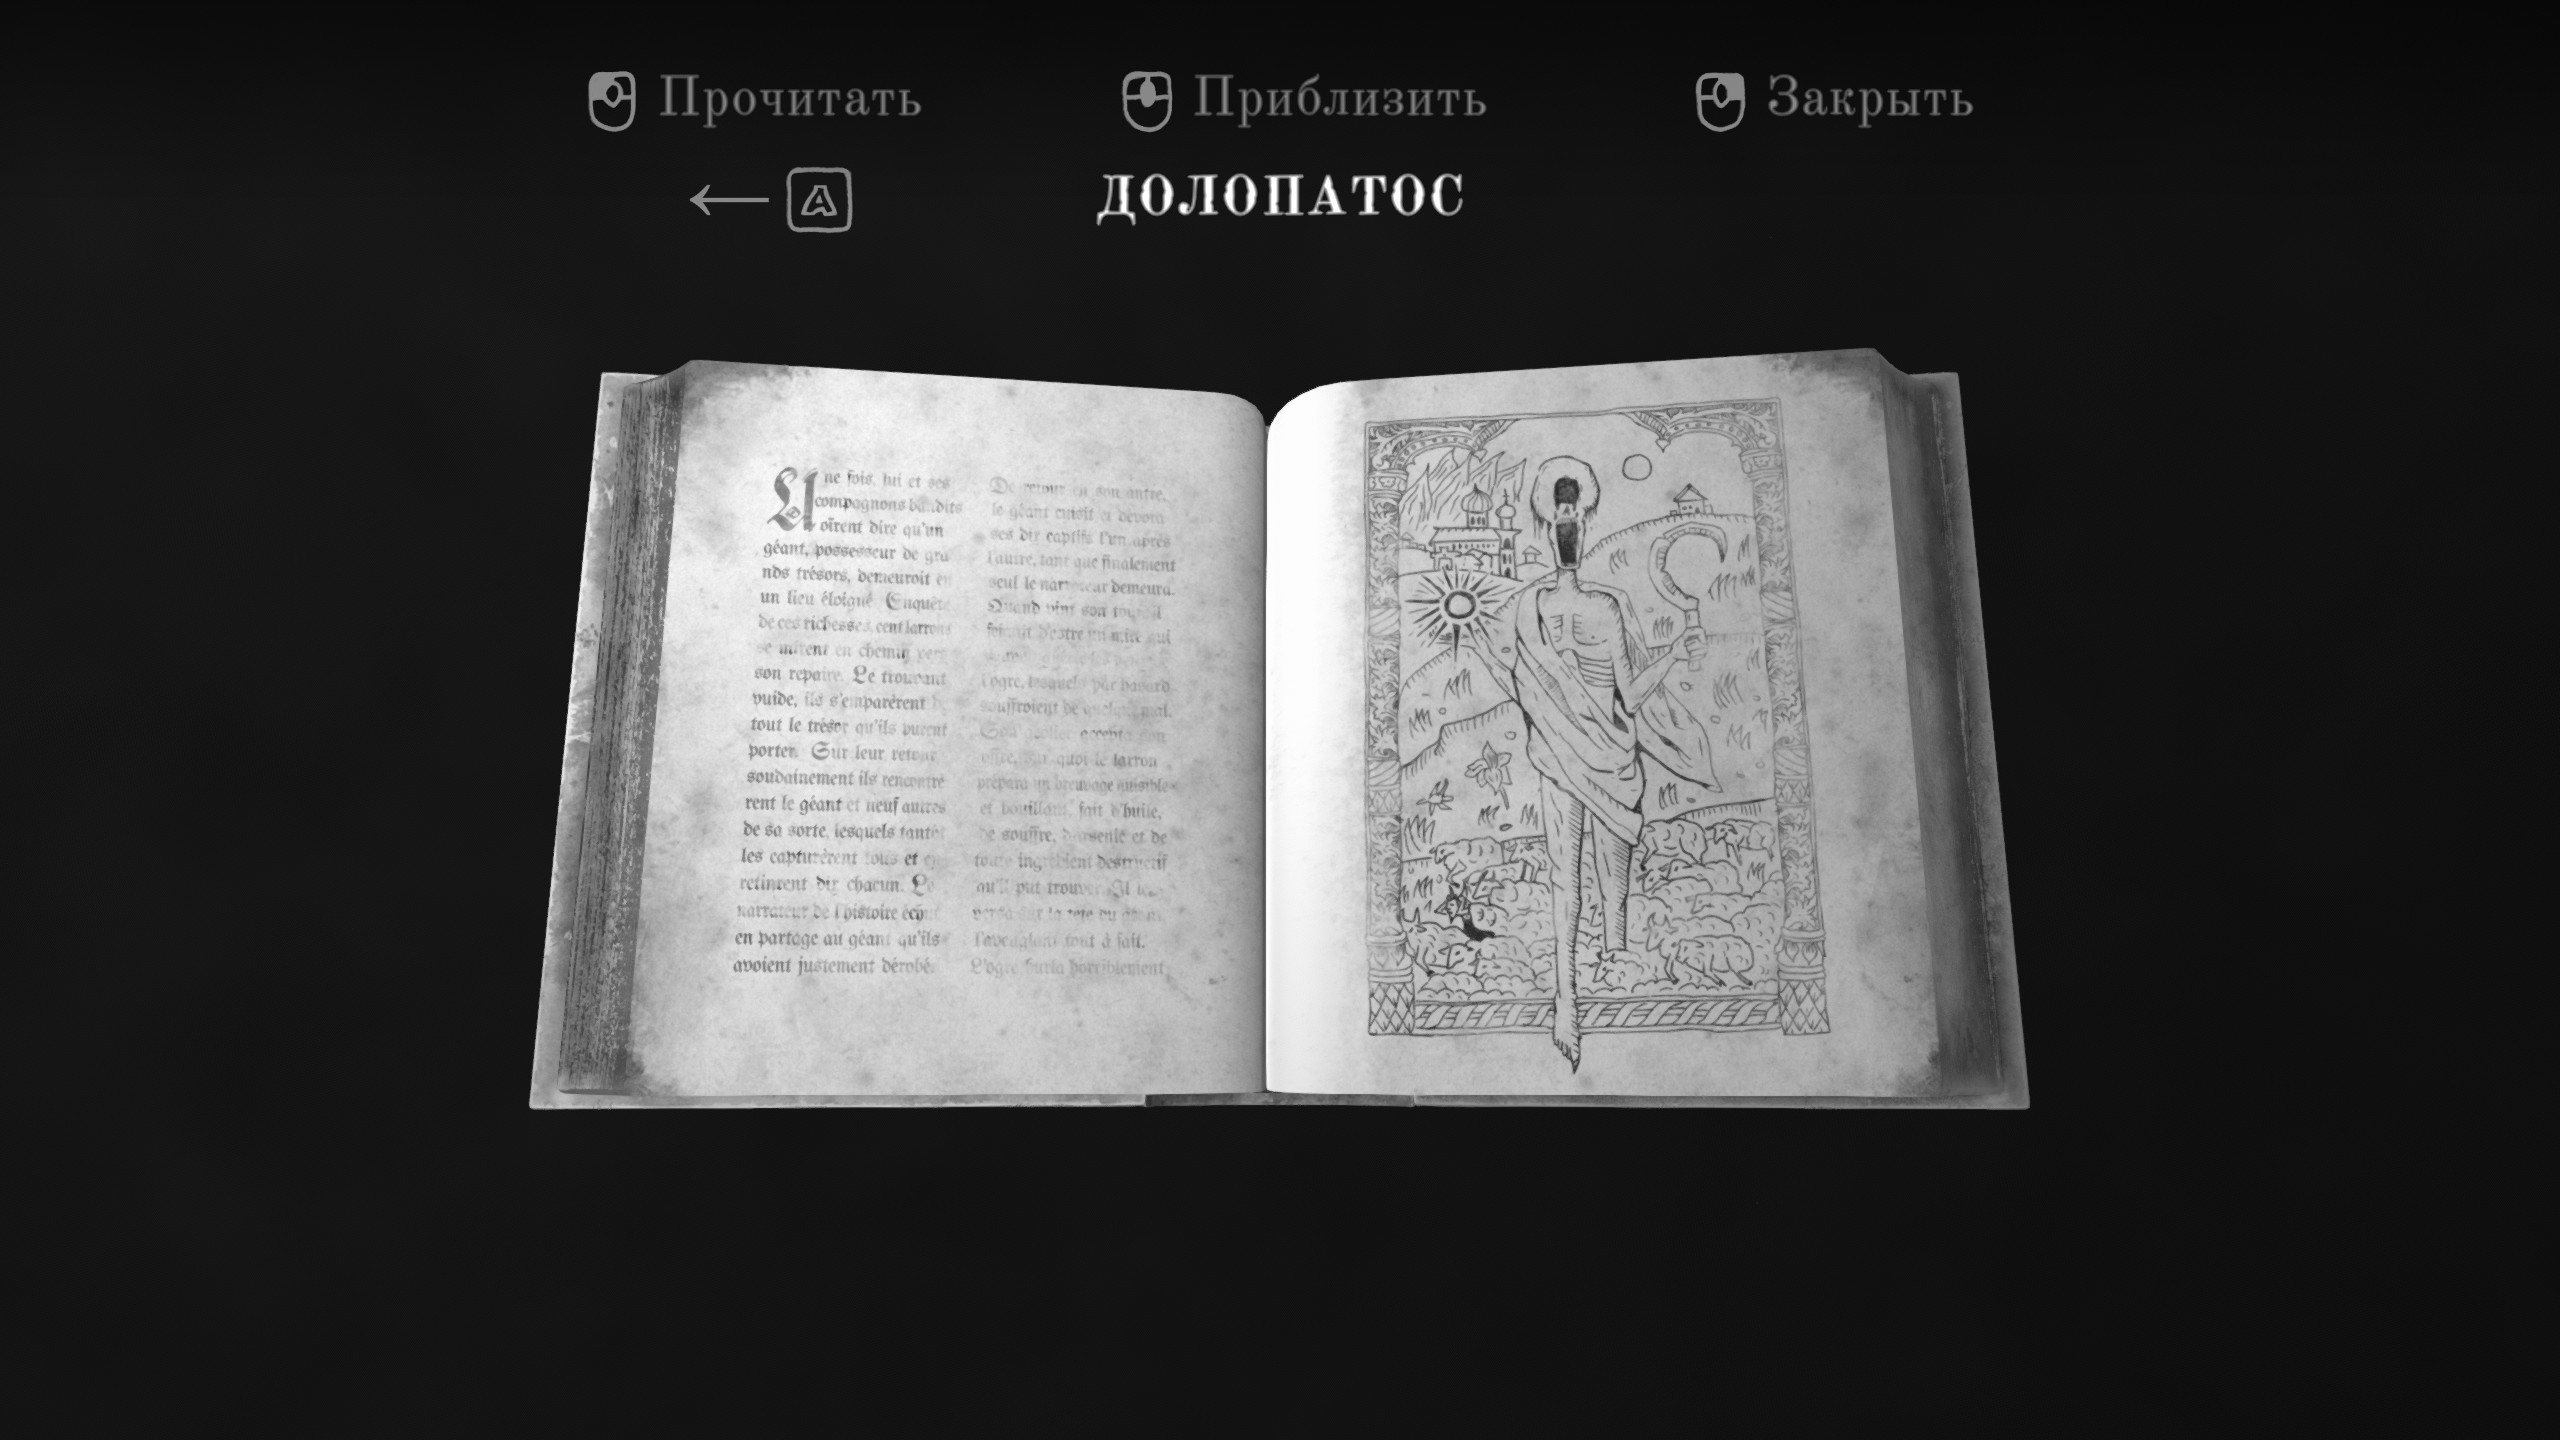 Прочитать
Приблизить
Закрыть
A
ДОЛОПАТОС
Une fois, lui et ses
compagnons bandits
oïrent dire qu'un
géant, possesseur de gra
nds trésors, demeuroit en
un lieu éloigné. Enquête
de ces richesses, cent larrons
se mirent en chemin vers
son repaire. Le trouvant
vuide, ils s'emparèrent
tout le trésor qu'ils purent
porter. Sur leur retour
soudainement ils rencontrè
rent le géant et neuf autres
de sa sorte, lesquels tantôt
les capturèrent tous et en
retinrent dix chacun. Le
narrateur de l'histoire échut
en partage au géant qu'ils
avoient justement dérobé.
De retour en son antre,
le géant cuisit et dévora
ses dix captifs l'un après
l'autre, tant que finalement
seul le narrateur demeura.
Quand vint son tour, il
feignit d'estre un mire qui
l'ogre, lesquels par hasard
souffroient de quelque mal.
Son geôlier accepta son
offre, sur quoi le larron
prépara un breuvage nuisible
et bouillant, fait d'huile,
de souffre, d'arsenic et de
toute ingrédient destructif
qu'il put trouver. Il le
versa sur la tête du géant,
l'aveuglant tout à fait.
L'ogre hurla horriblement,